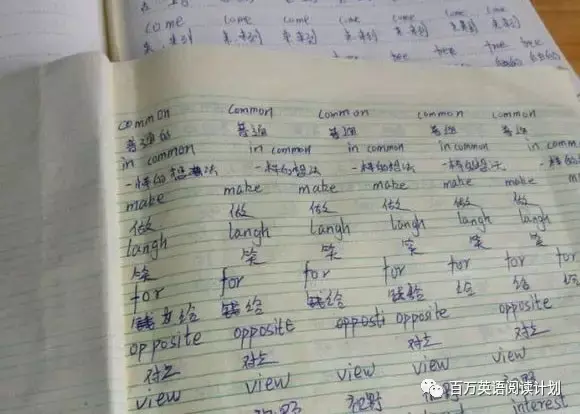 come come come come come
来.来到 来.来到 来.来到 来.来到
free free free
common common common common common
普通的 普通 普通 普通 普通
in common in common in common in common in comm
一样的想法 一样的想法 一样的想法 一样的想法 一样的
make make make make make make
做 做 做 做 做
langh langh langh langh langh langh
笑 笑 笑 笑 笑 笑
for for for for for for
给 给 给 给 给 给
opposite opposite opposti opposite opposite
对立 对立 对立 对立
view view view view view
视野 视野
interest
百万英语阅读计划